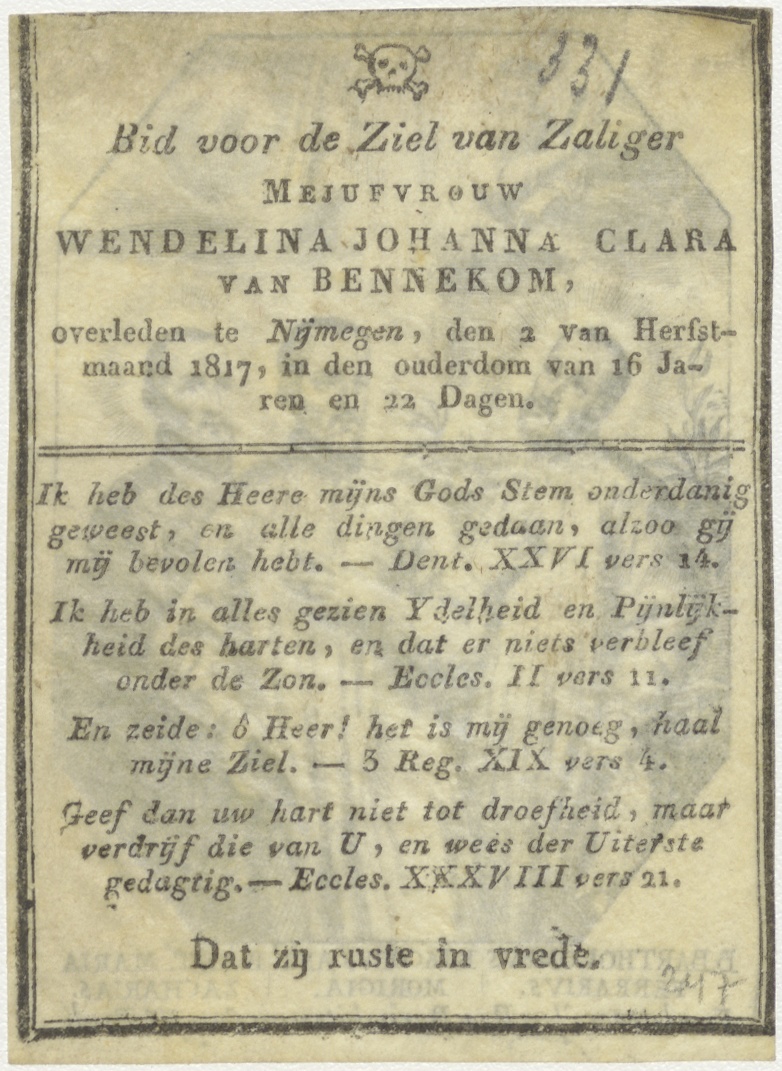 331
Bid voor de Ziel van Zaliger
MEJUFVROUW
WENDELINA JOHANNA CLARA
VAN BENNEKOM,
overleden te Nijmegen, den 2 van Herfst-
maand 1817, in den ouderdom van 16 Ja-
ren en 22 Dagen.
Ik heb des Heere mijns Gods Stem onderdanig
geweest, en alle dingen gedaan, alzoo gij
mij bevolen hebt. — Dent. XXVI vers 14.
Ik heb in alles gezien Ydelheid en Pijnlijk-
heid des harten, en dat er niets verbleef
onder de Zon. — Eccles. II vers 11.
En zeide: ô Heer! het is mij genoeg, haal
mijne Ziel. — 3 Reg. XIX vers 4.
Geef dan uw hart niet tot droefheid, maar
verdrijf die van U, en wees der Uiterste
gedagtig. — Eccles. XXXVIII vers 21.
Dat zij ruste in vrede.
247